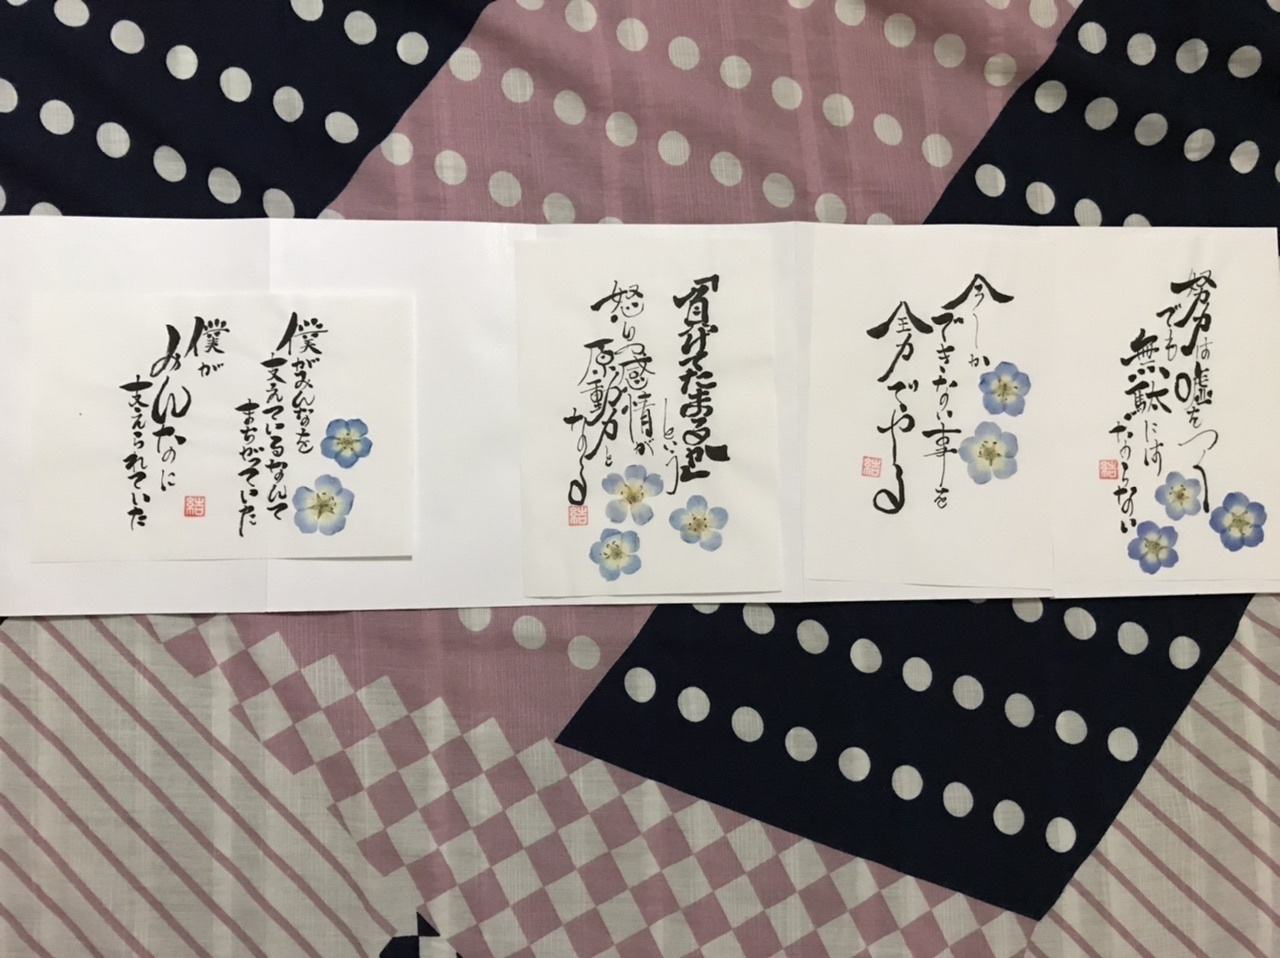 努力は嘘をつく
でも
無駄には
ならない
今しか
できない事を
全力でやる
結
「負けてたまるか」
という
怒りの感情が
原動力と
なる
結
僕がみんなを
支えているなんて
まちがっていた
僕が
みんなに
支えられていた
結